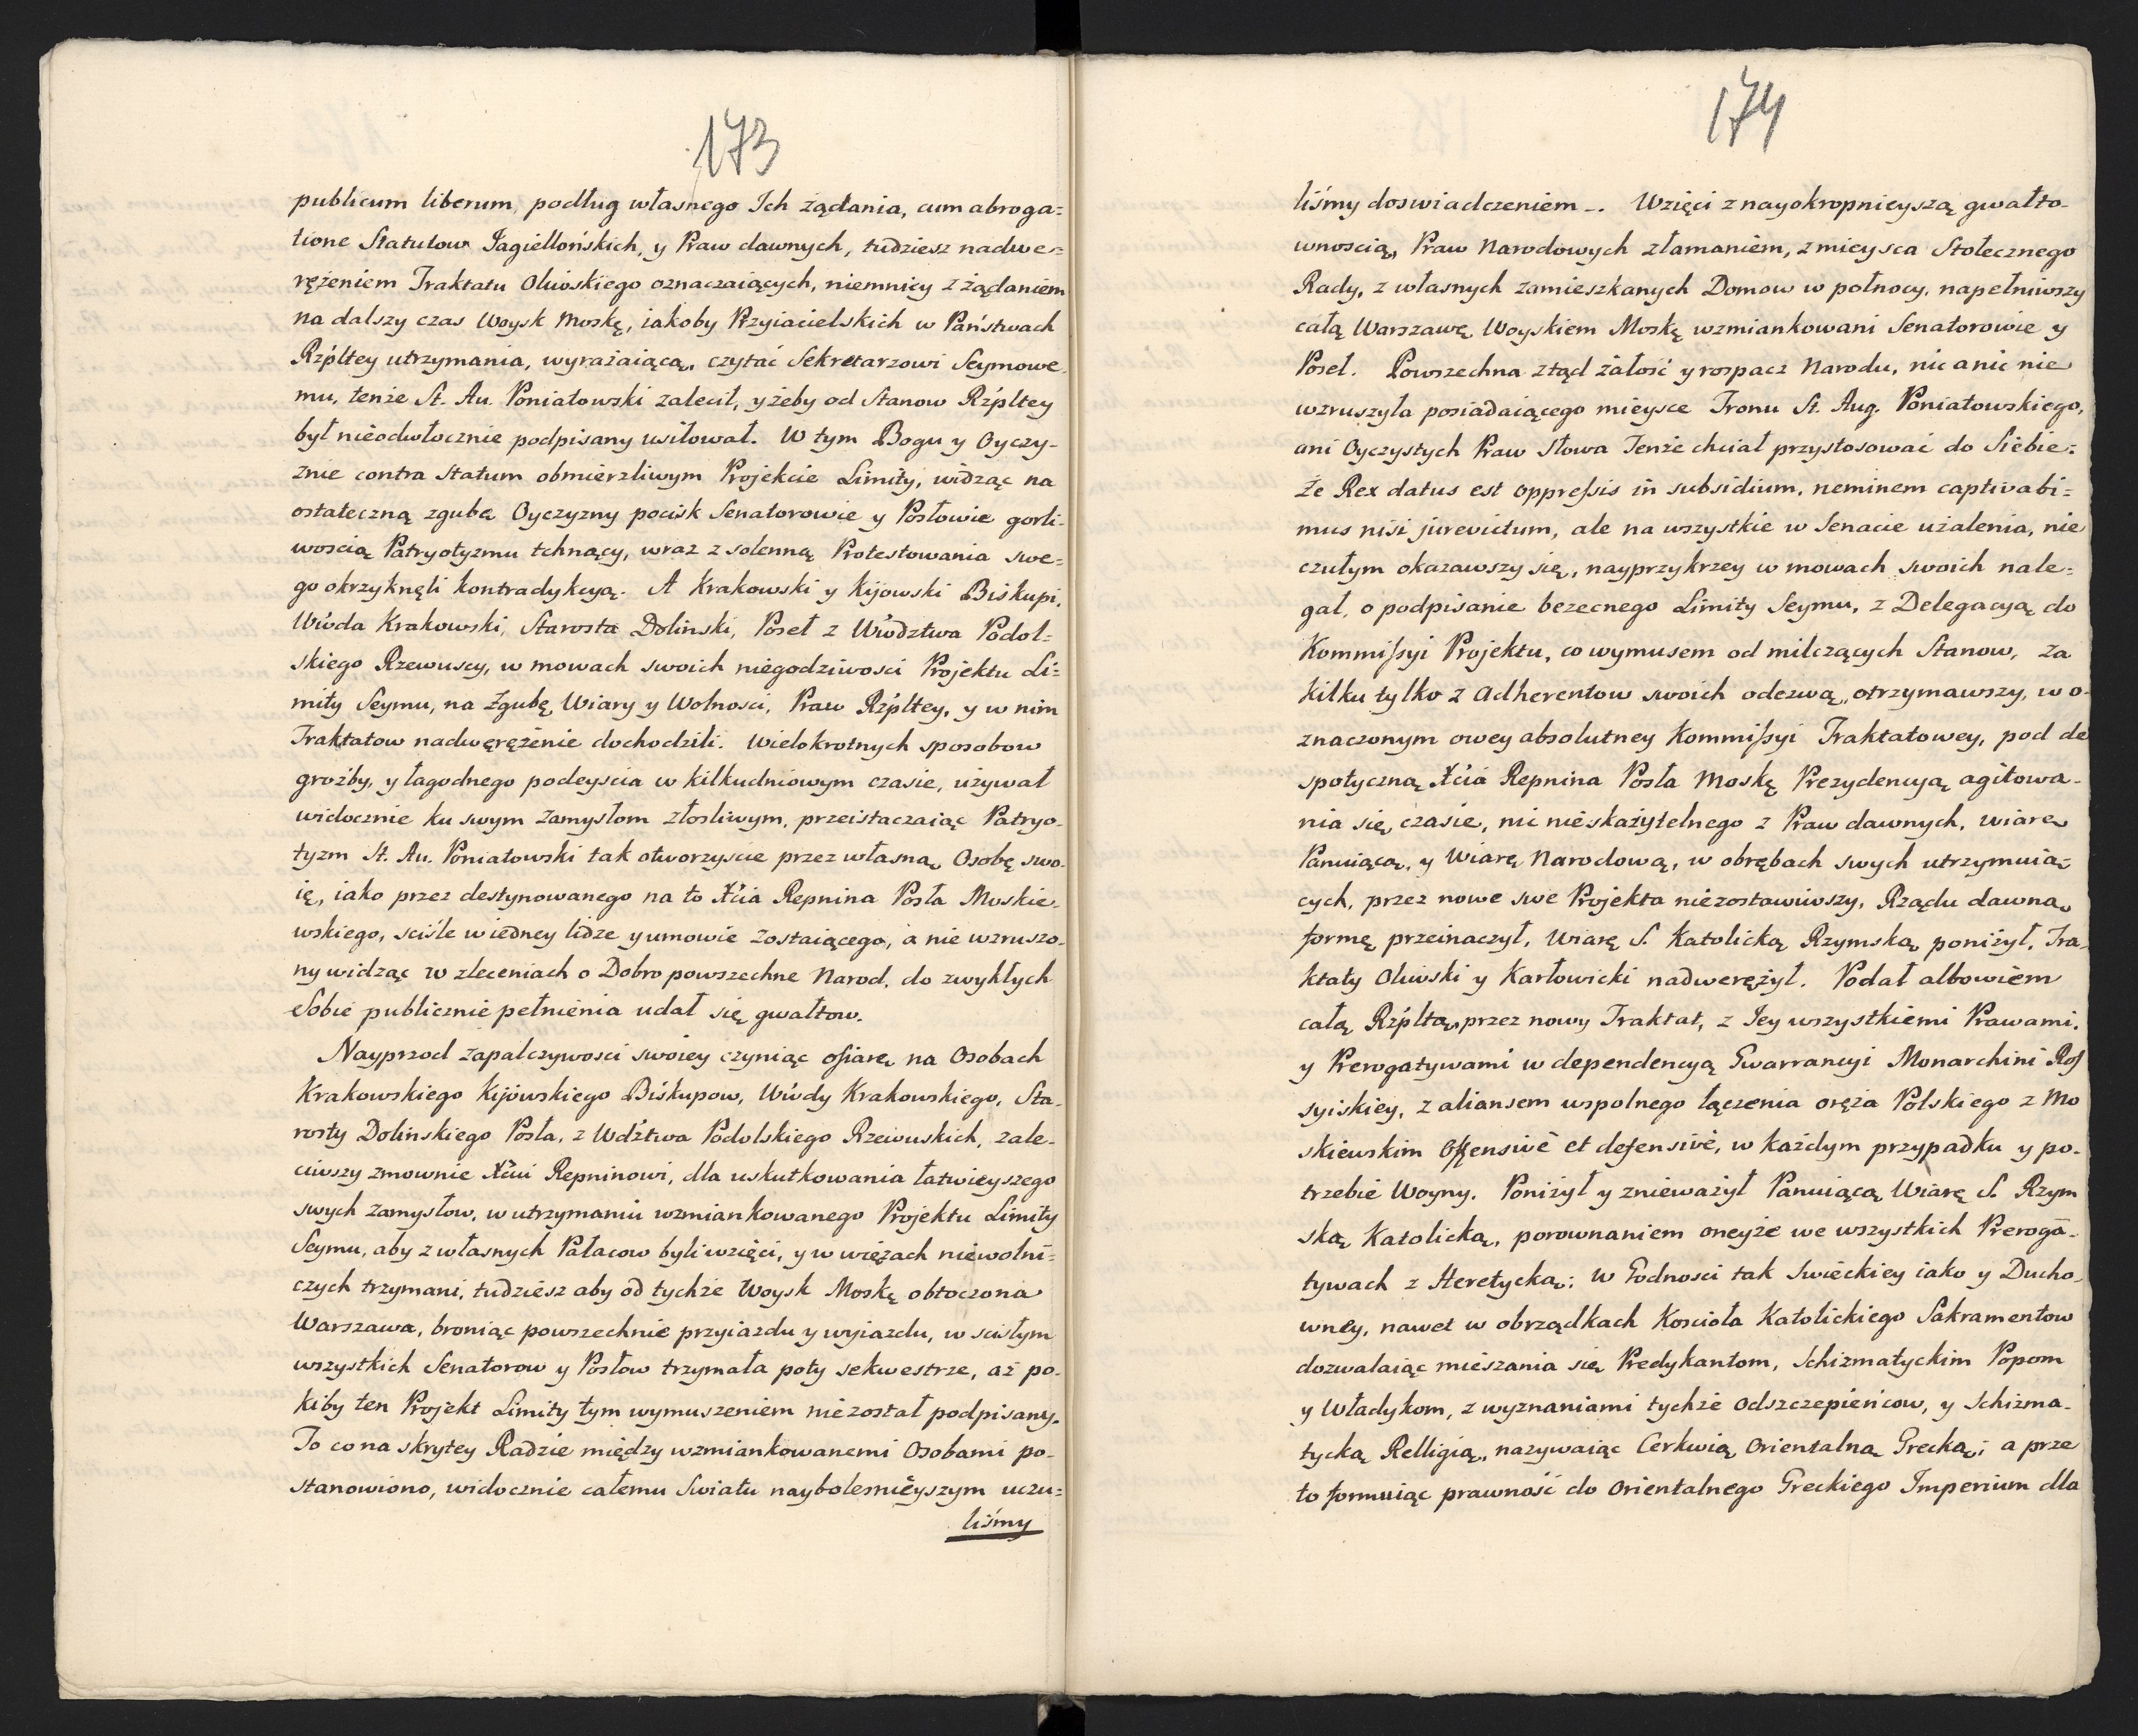 173
publicum liberum, podług własnego Ich żądania, cum abroga=
tione Statutow Jagiellońskich, y Praw dawnych, tudziesz nadwe=
rężeniem Traktatu Oliwskiego oznaczaiących, niemniey z żądaniem
na dalszy czas Woysk Moskę, iakoby Przyiacielskich w Państwach
Rzpltey utrzymania, wyrażaiącą, czytać Sekretarzowi Seymowe
mu, tenże St. Au. Poniatowski zalecił, y żeby od Stanow Rzpltey
był nieodwłocznie podpisany usiłował. W tym Bogu y Oyczy-
znie contra statum obmierzliwym Projekcie Limity, widząc na
ostateczną zgubę Oyczyzny pocisk Senatorowie y Posłowie gorli-
woscią Patryotyzmu tchnący, wraz z solenną Protestowania swe=
go okrzyknęli kontradykcyą. A Krakowski y Kijowski Biskupi,
Wwda Krakowski, Starosta Dolinski, Poseł z Wwdztwa Podol=
skiego Rzewuscy, w mowach swoich niegodziwosci Projektu Li=
mity Seymu, na zgubę Wiary y Wolnosci, Praw Rzpltey, y w nim
Traktatow nadwerężenie dochodzili. Wielokrotnych sposobow
groźby, y łagodnego podeyscia w kilkudniowym czasie, używał
widocznie ku swym zamysłom złosliwym, przeistaczaiąc Patryo-
tyzm St. Au. Poniatowski tak otworzyscie przez własną Osobę swo-
ię, iako przez destynowanego na to Xcia Repnina Posła Moskie-
wskiego, sciśle w iedney lidze y umowie zostaiącego, a nie wzruszo-
ny widząc w zleceniach o Dobro powszechne Narod, do zwykłych
Sobie publicznie pełnienia udał się gwałtow.
Nayprzod zapalczywosci swoiey czyniąc ofiarę na Osobach
Krakowskiego Kijowskiego Biskupow, Wwdy Krakowskiego, Sta-
rosty Dolinskiego Posła, z Wdztwa Podolskiego Rzewuskich, zale-
ciwszy zmownie Xciu Repninowi, dla uskutkowania łatwieyszego
swych zamysłow, w utrzymaniu wzmiankowanego Projektu Limity
Seymu, aby z własnych Pałacow byli wzięci, y w więzach niewolni=
czych trzymani, tudziesz aby od tychże Woysk Moskę obtoczona
Warszawa, broniąc powszechnie przyiazdu y wyiazdu, w scisłym
wszystkich Senatorow y Posłow trzymała poty sekwestrze, aż po-
kiby ten Projekt Limity tym wymuszeniem nie został podpisany.
To co na skrytey Radzie między wzmiankowanemi Osobami po-
stanowiono, widocznie całemu Swiatu naybolesnieyszym uczu=
liśmy
174
liśmy doswiadczeniem -. Wzięci z nayokropnieyszą gwałto-
wnoscią, Praw Narodowych złamaniem, z mieysca Stołecznego
Rady, z własnych zamieszkanych Domow w połnocy, napełniwszy
całą Warszawę Woyskiem Moskę wzmiankowani Senatorowie y
Poseł. Powszechna ztąd żałość y rospacz Narodu, nic a nic nie
wzruszyła posiadaiącego mieysce Tronu St. Aug. Poniatowskiego,
ani Oyczystych Praw Słowa Tenże chciał przystosować do Siebie:
że Rex datus est oppressis in subsidium, neminem captivabi=
mus nisi jurevictum, ale na wszystkie w Senacie użalenia, nie
czułym okazawszy się, nayprzykrzey w mowach swoich nale=
gał, o podpisanie bezecnego Limity Seymu, z Delegacyą do
Kommissyi Projektu, co wymusem od milczących Stanow, za
kilku tylko z Adherentow swoich odezwą, otrzymawszy, w o-
znaczonym owey absolutney Kommissyi Traktatowey, pod de
spotyczną Xcia Repnina Posła Moskę Prezydencyą agitowa-
nia się czasie, nic nieskazytelnego z Praw dawnych, wiarę
Panuiącą, y Wiarę Narodową, w obrębach swych utrzymuią=
cych, przez nowe swe Projekta niezostawiwszy, Rządu dawną
formę przeinaczył, Wiarę S. Katolicką Rzymską poniżył, Tra-
ktaty Oliwski y Karłowicki nadwerężył. Podał albowiem
całą Rzpltą, przez nowy Traktat, z Jey wszystkiemi Prawami,
y Prerogatywami w dependencyą Gwarrancyi Monarchini Ros
syiskiey, z aliansem wspolnego łączenia oręża Polskiego z Mo
skiewskim offensivè et defensivè, w każdym przypadku y po-
trzebie Woyny. Poniżył y znieważył Panuiącą Wiarę S. Rzym
ską Katolicką, porownaniem oneyże we wszystkich Preroga-
tywach z Heretycką; w Godnosci tak Swieckiey iako y Ducho-
wney, nawet w obrządkach Koscioła Katolickiego Sakramentow
dozwalaiąc mieszania się Predykantom, Schizmatyckim Popom
y Władykom, z wyznaniami tychże Odszczepieńcow, y Schizma-
tycką Relligią, nazywaiąc Cerkwią Orientalną Grecką; a prze
to formuiąc prawność do Orientalnego Greckiego Imperium dla